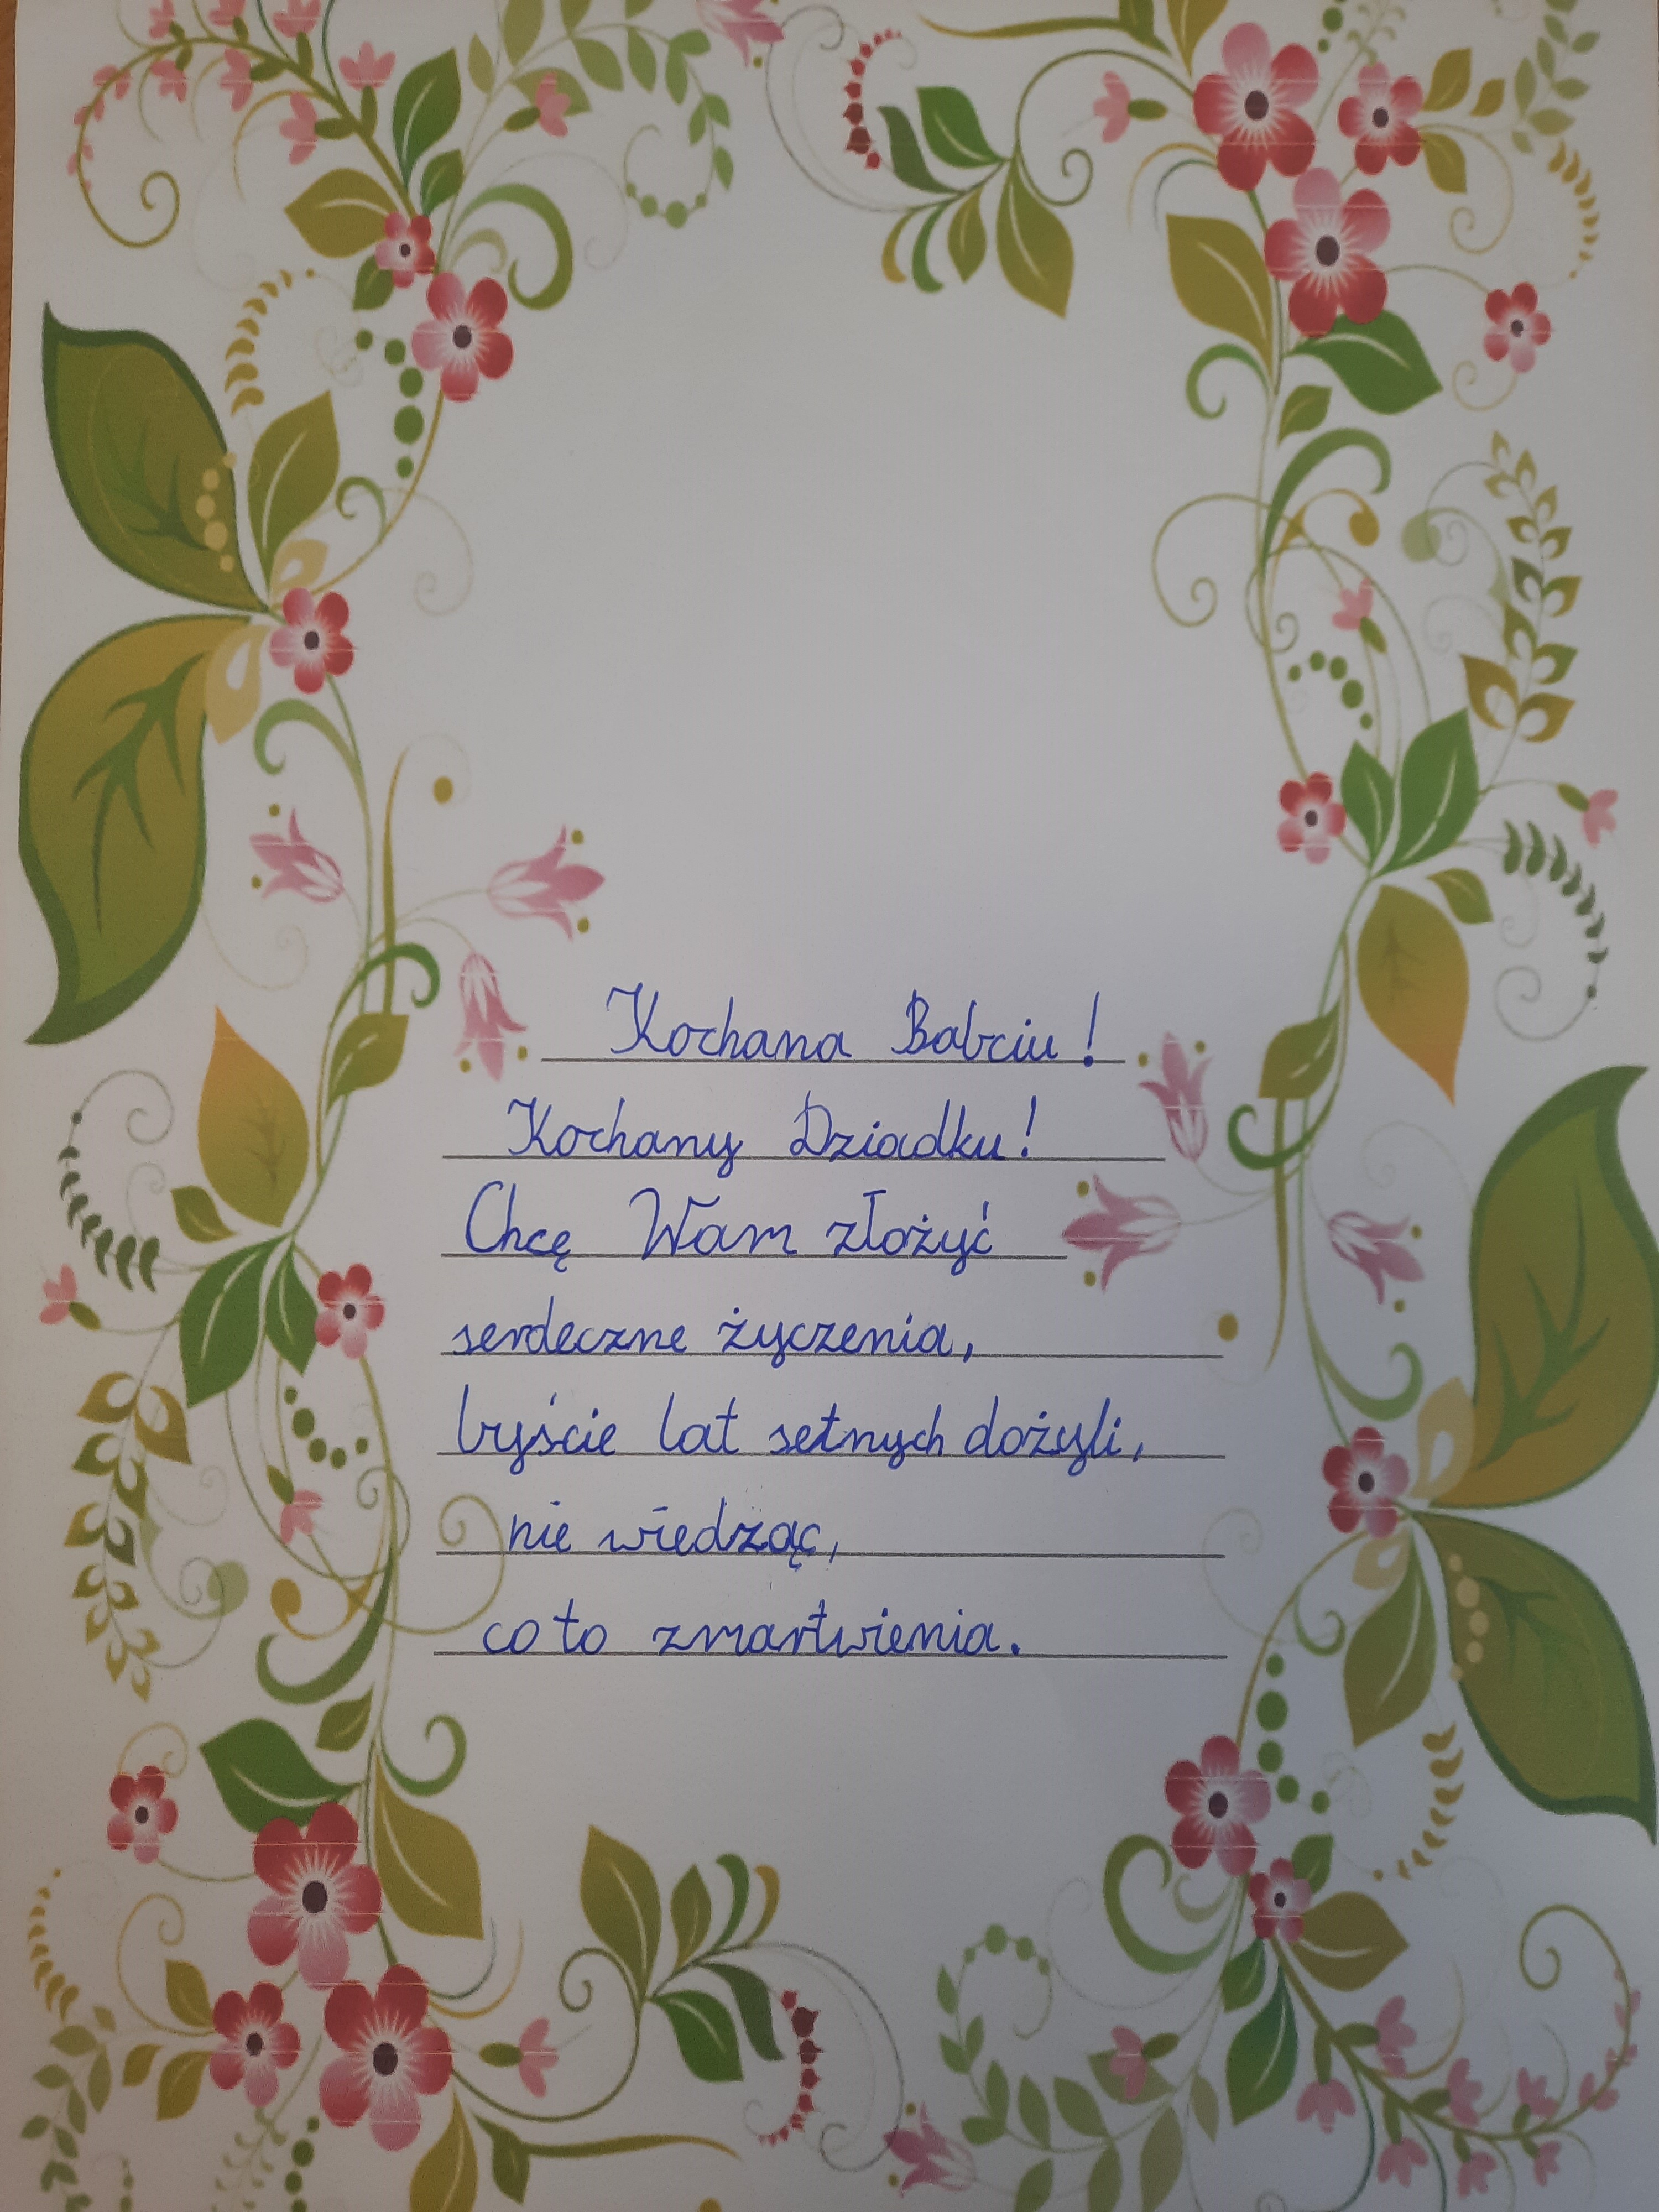 Kochana Babciu!
Kochany Dziadku!
Chcę Wam złożyć
serdeczne życzenia,
byście lat setnych dożyli,
nie wiedząc,
co to zmartwienia.